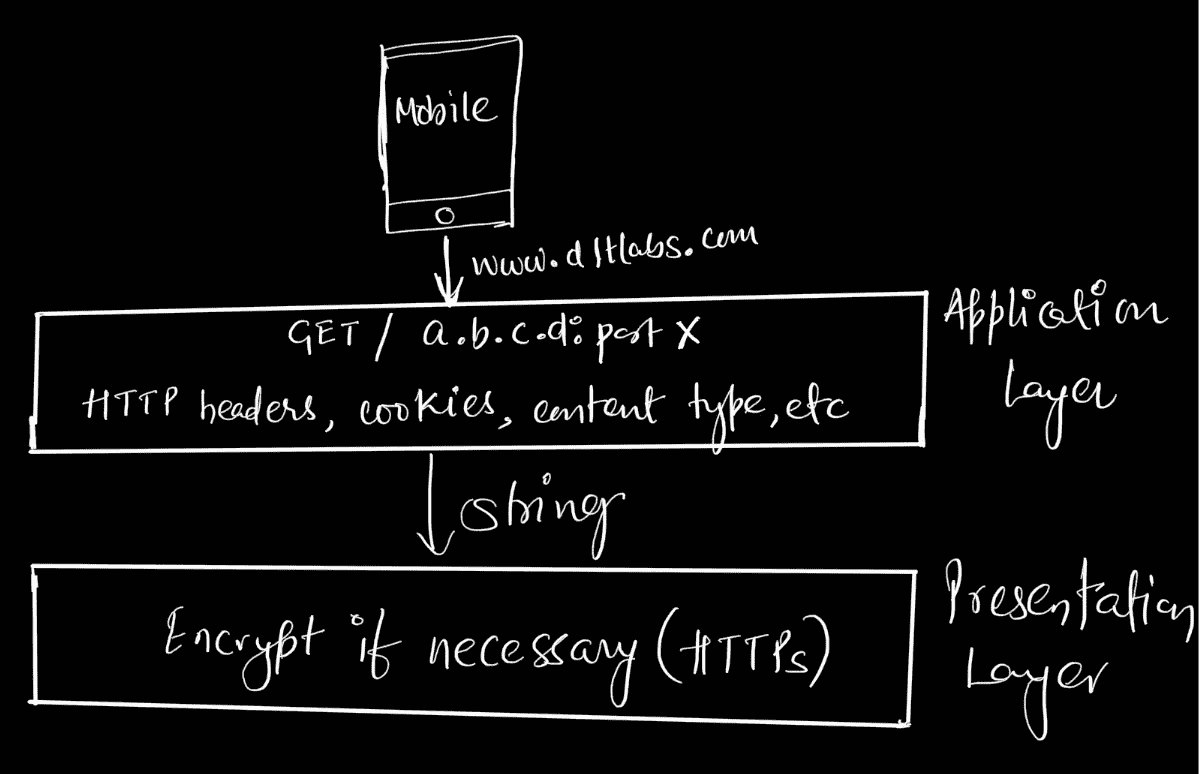 Mobile
www.dltlabs.com
GET / a.b.c.d: port X
HTTP headers, cookies, content type, etc
Application
Layer
string
Encrypt if necessary (HTTPs)
Presentation
Layer